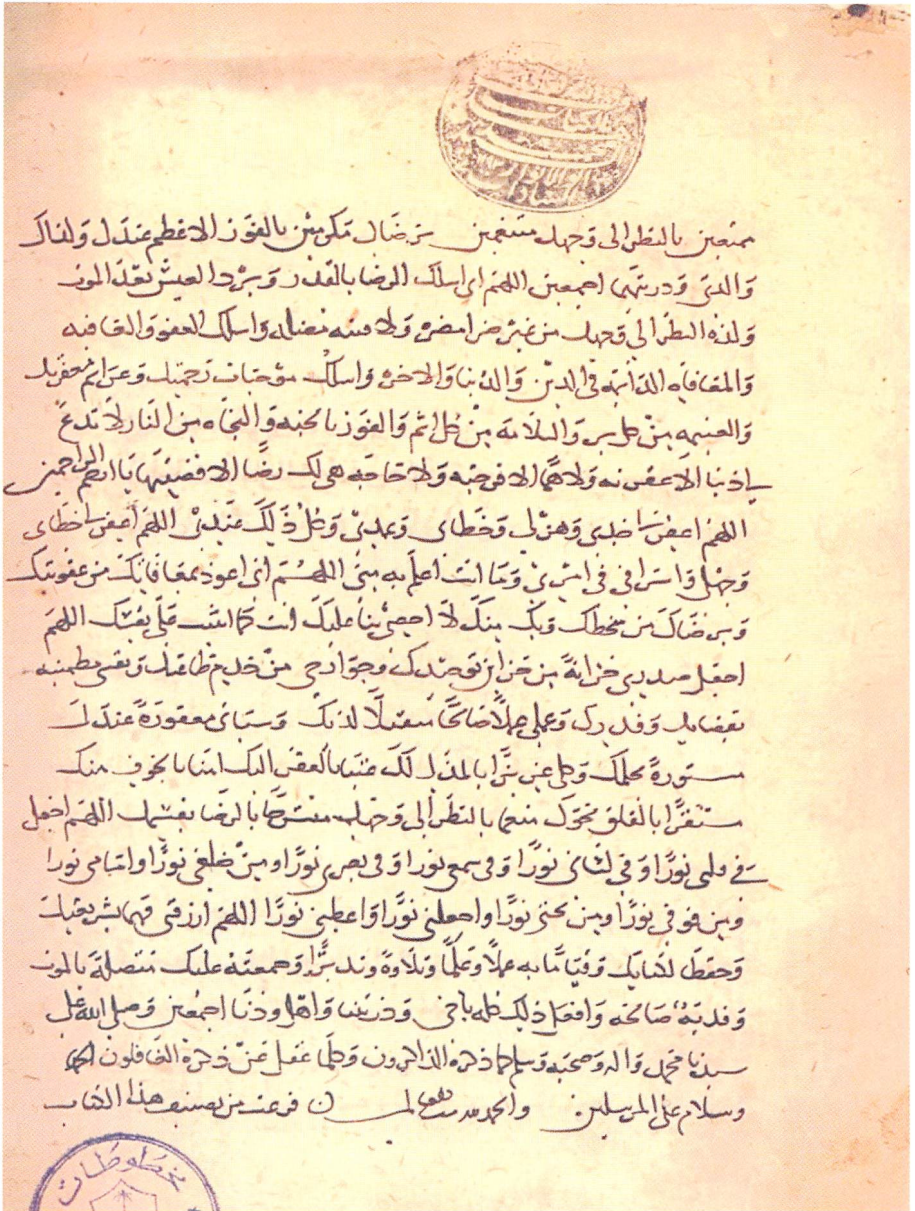 ممتعين بالنظر الى وجهك منعمين برضاك مكرمين بالفوز الاعظم عندك ولذاك
والدي وذريتهما اجمعين اللهم اني اسلك الرضا بالقدر وبرد العيش بعد الموت
ولذه النظر الى وجهك من غير ضرا مضره ولا فتنه مضله واسلك العفو والعافيه
والمعافاه الدائمه في الدين والدنيا والاخره واسلك موجبات رحمتك وعزائم مغفرتك
والغنيمه من كل بر والسلامة من كل اثم والفوز بالجنه والنجاه من النار لا تدع
لي ذنبا الا غفرته ولا هما الا فرجته ولا حاجه هي لك رضا الا قضيتها يا ارحم الراحمين
اللهم اغفر لي جدي وهزلي وخطاي وعمدي وكل ذلك عندي اللهم اغفر لي خطاي
وجهلي واسرافي في امري وما انت اعلم به مني اللهم اني اعوذ بمعافاتك من عقوبتك
وبرضاك من سخطك وبك منك لا احصي ثنا عليك انت كما اثنيت على نفسك اللهم
اجعل صدري خزانة من خزاين توحيدك وجوارحي من خدم طاعتك ونفسي مطمئنه
بقضايك وقدرك وعملي عملا صالحا متقبلا لديك وسياتي مغفورة عندك
مستورة بحلمك بالذل لك بالفقر اليك امنا بالخوف منك
مستقرا بالقلق نحوك منعما بالنظر الى وجهك منشرحا بالرضا بقسمك اللهم اجعل
في قلبي نورا وفي لساني نورا وفي سمعي نورا وفي بصري نورا ومن خلفي نورا وامامي نورا
ومن فوقي نورا ومن تحتي نورا واجعلني نورا واعطني نورا اللهم ارزقني فهما بشريعتك
وحفظا لكتابك وقياما به عملا وعلما وتلاوة وتدبرا وجمعية عليك متصلة بالموت
صالحه وافعل ذلك كله وذريتنا واهل ودنا اجمعين وصلى الله على
سيدنا محمد واله وصحبه وسلم كلما ذكره الذاكرون وكلما غفل عن ذكره الغافلون
وسلام على المرسلين والحمد لله رب العالمين فرغت من تصنيف هذا الكتاب
مخطوطات